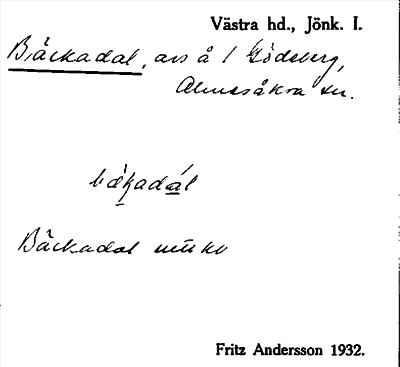 Västra hd., Jönk. l.
Bäckadal, avs å / Gödeberg,
Almesåkra sn.
Bäckadal
Fritz Andersson 1932.